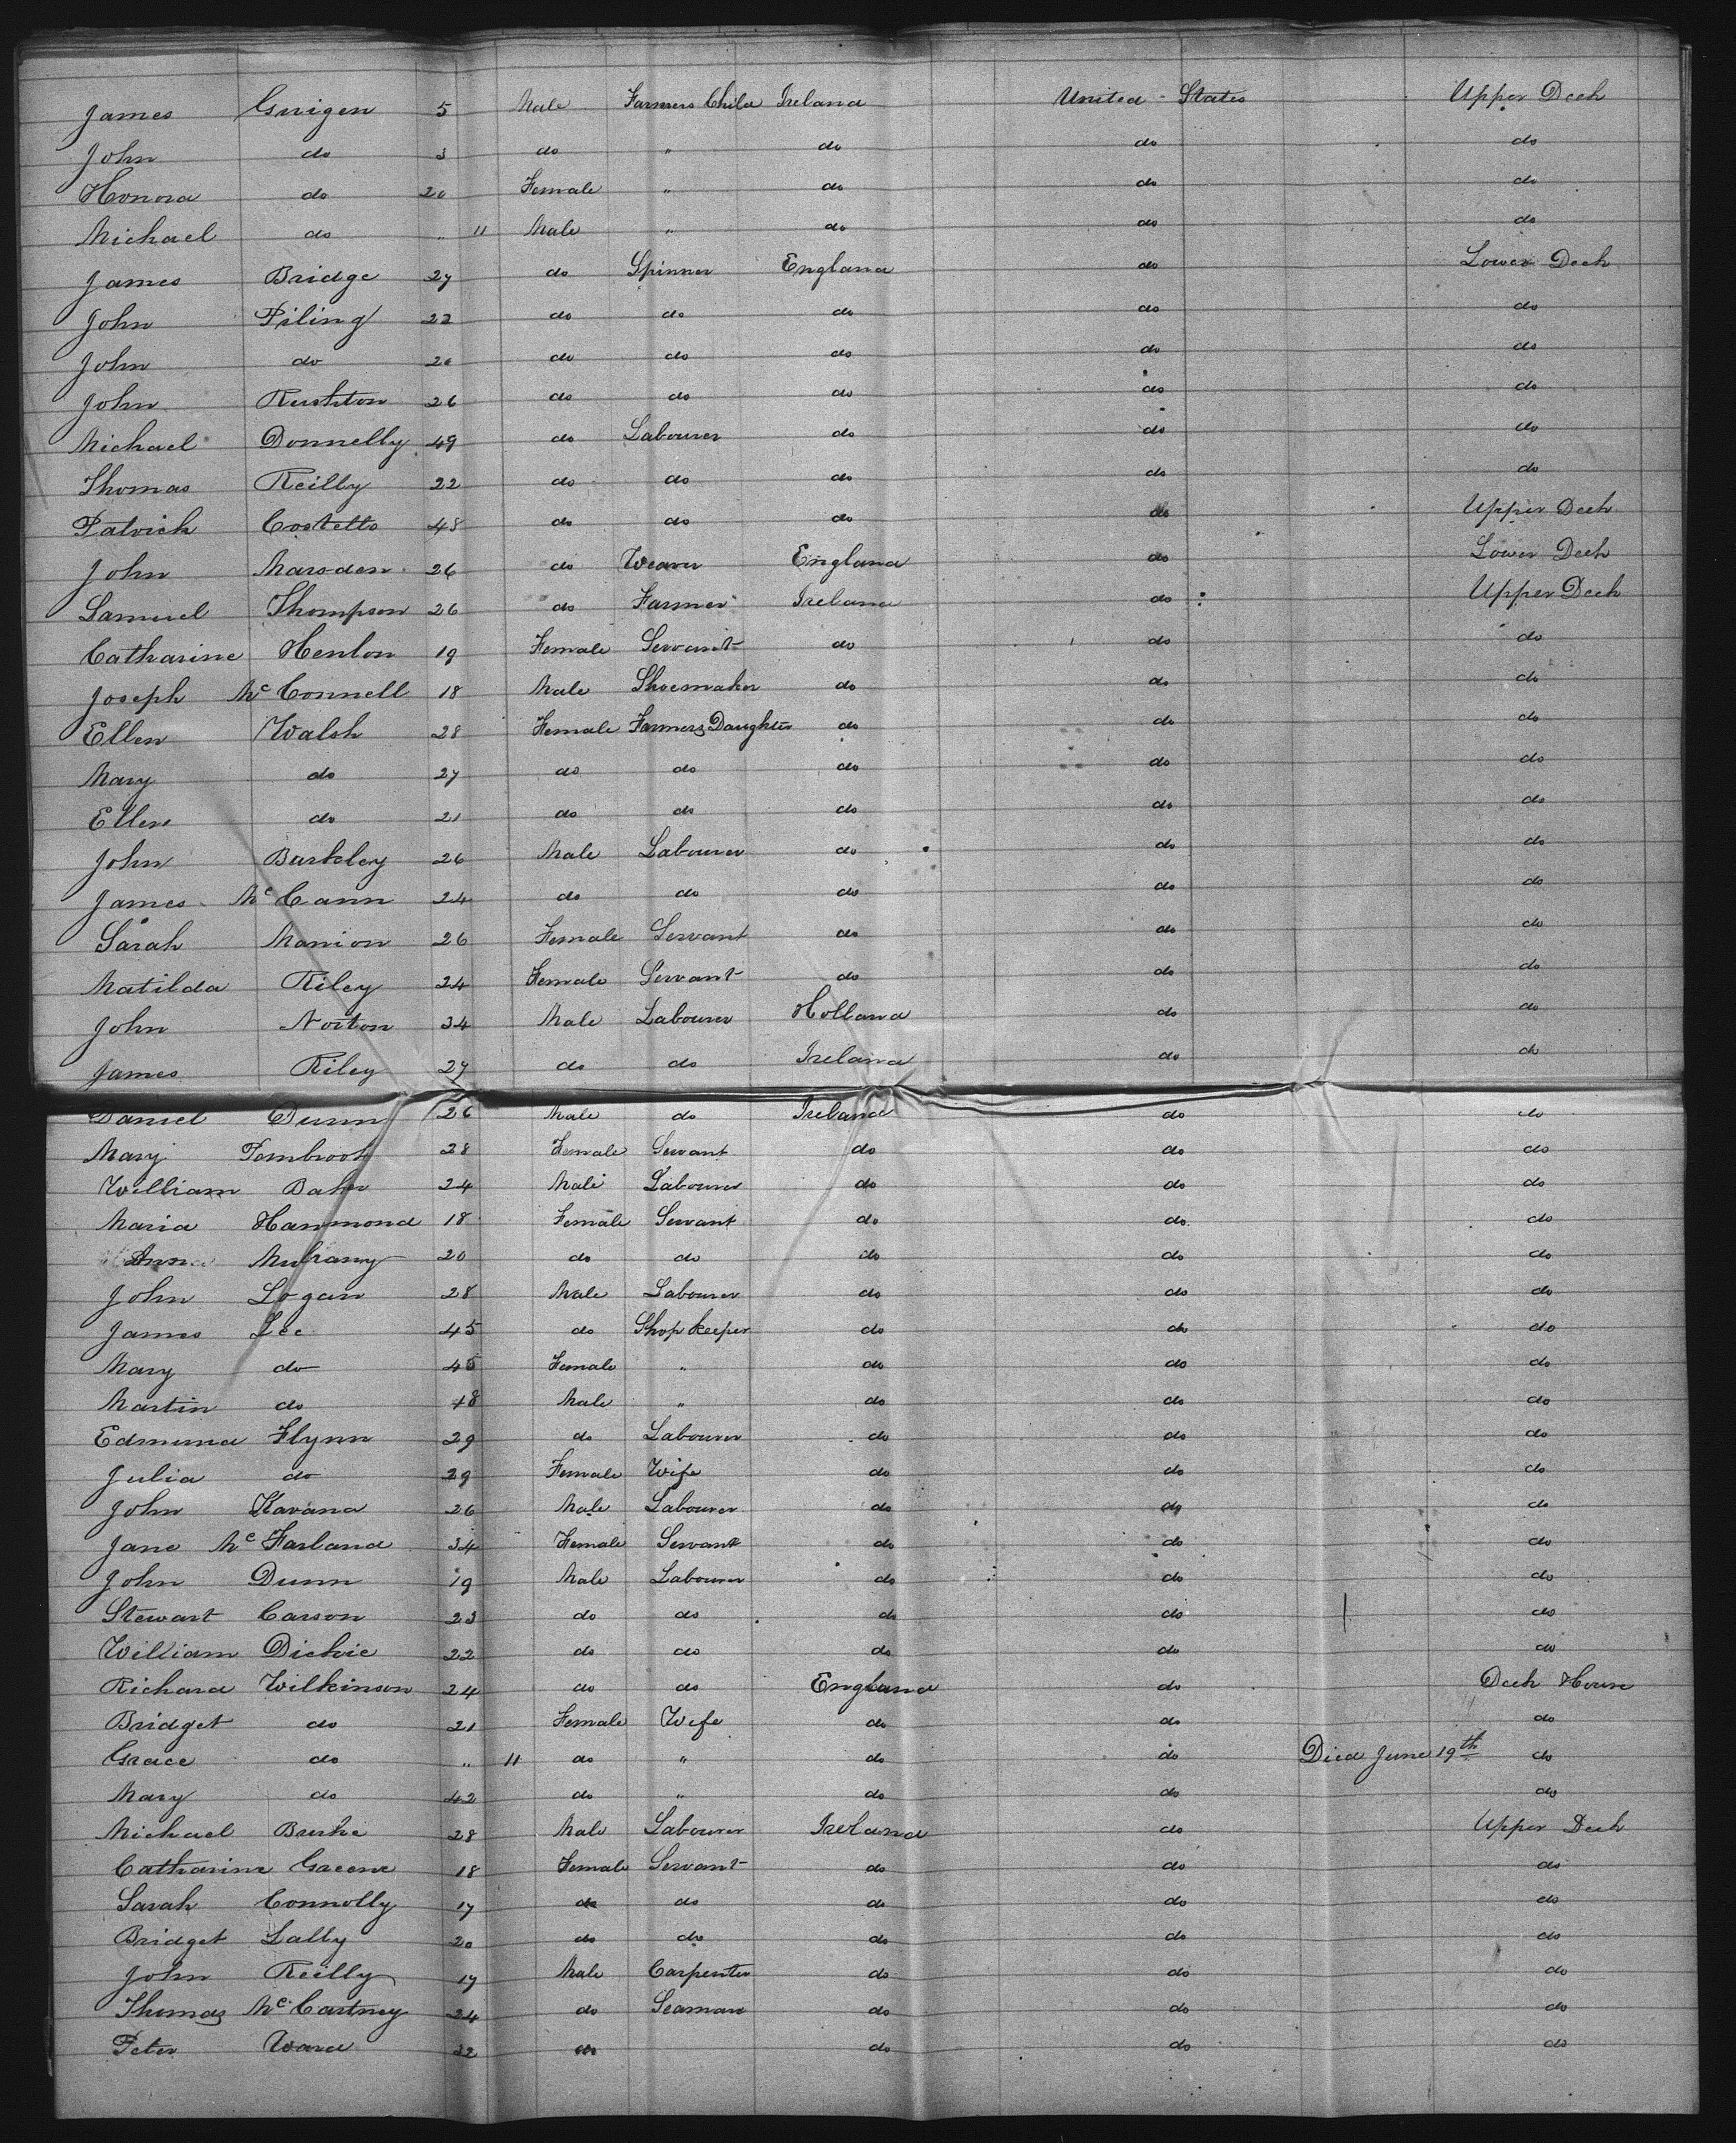 James Guigen 5 Male Farmers Child Ireland United States Upper Deck
John do 3 do " do do do
Honora do 20 Female " do do do
Michael do " 11 Male " do do do
James Bridge 27 do Spinner England do Lower Deck
John Piling 22 do do do do do
John do 20 do do do do do
John Rushton 26 do do do do do
Michael Donnelly 49 do Labourer do do do
Thomas Reilly 22 do do do do do
Patrick Costello 48 do do do do Upper Deck
John Marsden 26 do Weaver England do Lower Deck
Samuel Thompson 26 do Farmer Ireland do Upper Deck
Catharine Henlon 19 Female Servant do do do
Joseph McConnell 18 Male Shoemaker do do do
Ellen Walsh 28 Female Farmers Daughter do do do
Mary do 27 do do do do do
Ellen do 21 do do do do do
John Barkley 26 Male Labourer do do do
James McCann 24 do do do do do
Sarah Manion 26 Female Servant do do do
Matilda Riley 24 Female Servant do do do
John Norton 34 Male Labourer Holland do do
James Riley 27 do do Ireland do do
Daniel Dunn 26 Male do Ireland do do
Mary Pembrook 28 Female Servant do do do
William Bahn 24 Male Labourer do do do
Maria Hammond 18 Female Servant do do do
Ann Mulrany 20 do do do do do
John Logan 28 Male Labourer do do do
James Lee 45 do Shop keeper do do do
Mary do 45 Female " do do do
Martin do 18 Male " do do do
Edmund Flynn 29 do Labourer do do do
Julia do 29 Female Wife do do do
John Kavana 26 Male Labourer do do do
Jane McFarland 34 Female Servant do do do
John Dunn 19 Male Labourer do do do
Stewart Carson 23 do do do do do
William Dickie 22 do do do do do
Richard Wilkinson 24 do do England do Deck House
Bridget do 21 Female Wife do do do
Grace do " 11 do " do do Died June 19th do
Mary do 42 do " do do do
Michael Burke 28 Male Labourer Ireland do Upper Deck
Catharine 18 Female Servant do do do
Sarah Connolly 17 do do do do do
Bridget Lally 20 do do do do do
John Reilly 17 Male Carpenter do do do
Thomas McCartney 24 do Seaman do do do
Peter Ward 32 do do do do